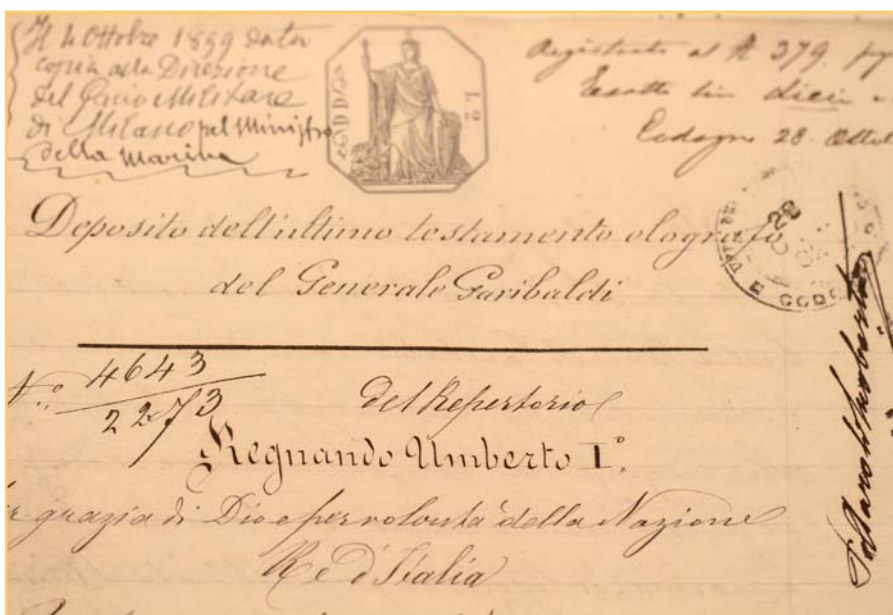 Il 4 Ottobre 1899 data
copia alla Direzione
del Genio Militare
di Milano pel Ministro
della Marina
Registrato al N 379
Esatte lire dieci
Codogno 28 Ottob
Deposito dell'ultimo testamento olografo
del Generale Garibaldi
N.° 4643
2273
del Repertorio
Regnando Umberto I°.
grazia di Dio e per volontà della Nazione
Re d'Italia
28